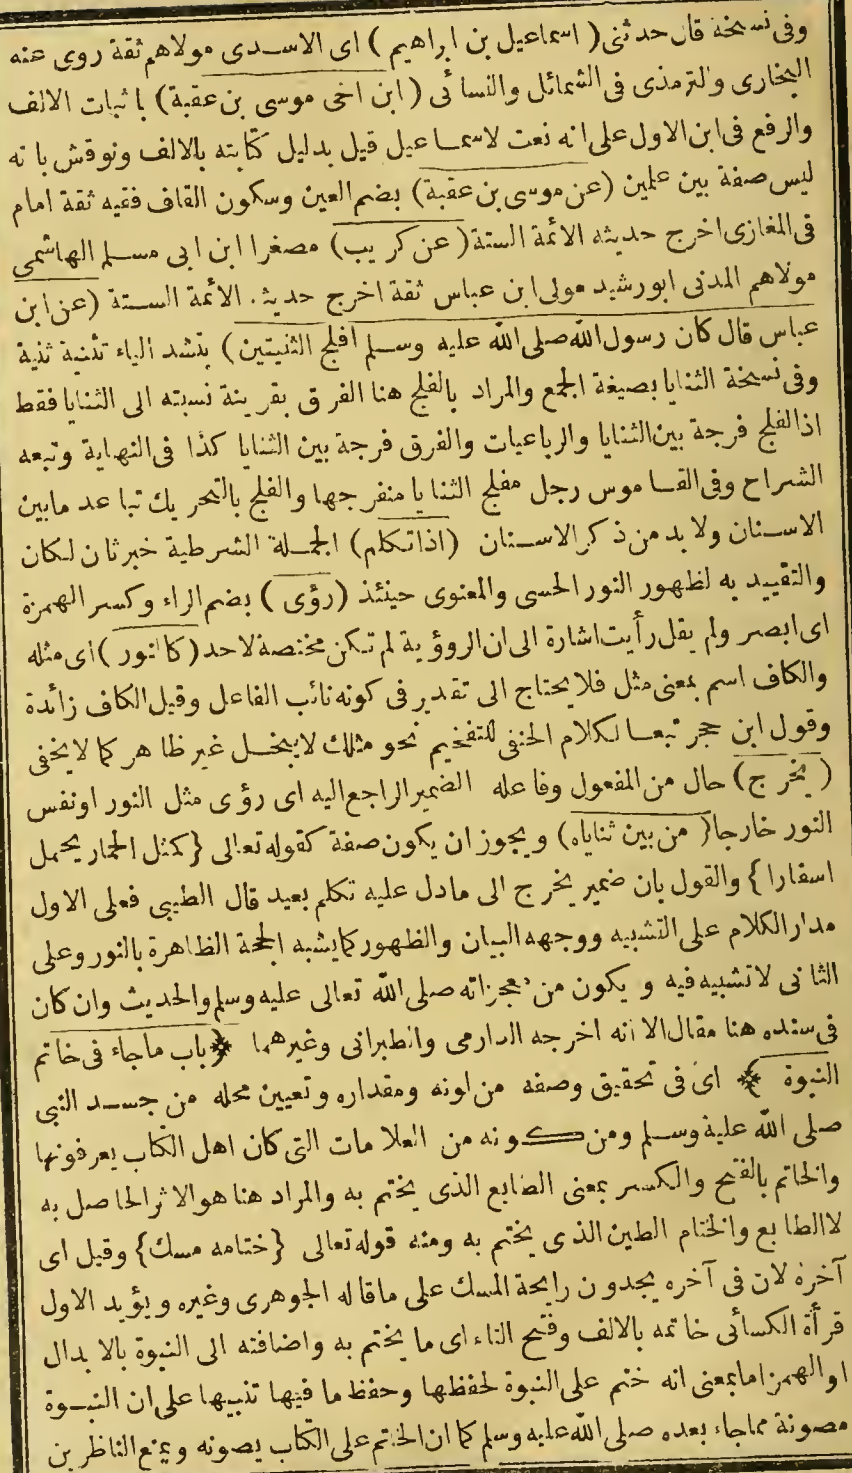 وفى نسخة قال حدثنى ( اسماعيل بن ابراهيم ) اى الاسدى مولاهم ثقة روى عنه
البخارى والترمذى فى الشمائل والنسائى ( ابن اخى موسى بن عقبة ) باثبات الالف
والرفع فى ابن الاول على انه نعت لاسماعيل قيل بدليل كتابته بالالف ونوقش بانه
ليس صفة بين علمين ( عن موسى بن عقبة ) بضم العين وسكون القاف فقيه ثقة امام
فى المغازى اخرج حديثه الائمة الستة ( عن كريب ) مصغرا ابن ابى مسلم الهاشمى
مولاهم المدنى ابورشيد مولى ابن عباس ثقة اخرج حديثه الائمة الستة ( عن ابن
عباس قال كان رسول الله صلى الله عليه وسلم افلج الثنيتين ) بتشد الياء تثنية ثنية
وفى نسخة الثنايا بصيغة الجمع والمراد بالفلج هنا الفرق بقرينة نسبته الى الثنايا فقط
اذ الفلج فرجة بين الثنايا والرباعيات والفرق فرجة بين الثنايا كذا فى النهاية وتبعه
الشراح وفى القاموس رجل مفلج الثنايا منفرجها والفلج بالتحريك تباعد مابين
الاسنان ولا بد من ذكر الاسنان ( اذا تكلم ) الجملة الشرطية خبر ثان لكان
والتقييد به لظهور النور الحسى والمعنوى حينئذ ( رؤى ) بضم الراء وكسر الهمزة
اى ابصر ولم يقل رأيت اشارة الى ان الروؤية لم تكن مختصة لاحد ( كالنور ) اى مثله
والكاف اسم بمعنى مثل فلا يحتاج الى تقدير فى كونه نائب الفاعل وقيل الكاف زائدة
وقول ابن حجر تبعا لكلام الحنفى للتفخيم نحو مثلك لايبخل غير ظاهر كما لايخفى
( يخرج ) حال من المفعول وفاعله الضمير الراجع اليه اى رؤى مثل النور اونفس
النور خارجا ( من بين ثناياه ) ويجوز ان يكون صفة كقوله تعالى { كمثل الحمار يحمل
اسفارا } والقول بان ضمير يخرج الى مادل عليه تكلم بعيد قال الطيبى فعلى الاول
مدار الكلام على التشبيه ووجهه البيان والظهور كما يشبه الحجة الظاهرة بالنور وعلى
الثانى لاتشبيه فيه ويكون من معجزاته صلى الله تعالى عليه وسلم والحديث وان كان
فى سنده هنا مقال الا انه اخرجه الدارمى والطبرانى وغيرهما ﴿ باب ماجاء فى خاتم
النبوة ﴾ اى فى تحقيق وصفه من لونه ومقداره وتعيين محله من جسد النبى
صلى الله عليه وسلم ومن كونه من العلامات التى كان اهل الكتاب يعرفونها
والخاتم بالفتح والكسر بمعنى الطابع الذى يختم به والمراد هنا هو الاثر الحاصل به
لا الطابع والختام الطين الذى يختم به ومنه قوله تعالى { ختامه مسك } وقيل اى
آخره لان فى آخره يجدون رايحة المسك على ماقاله الجوهرى وغيره ويؤيد الاول
قرأة الكسائى خاتمه بالالف وفتح التاء اى ما يختم به واضافته الى النبوة بالابدال
او الهمز اما بمعنى انه ختم على النبوة لحفظها وحفظ ما فيها تنبيها على ان النبوة
مصونة مما جاء بعده صلى الله عليه وسلم كما ان الختم على الكتاب يصونه ويمنع الناظرين